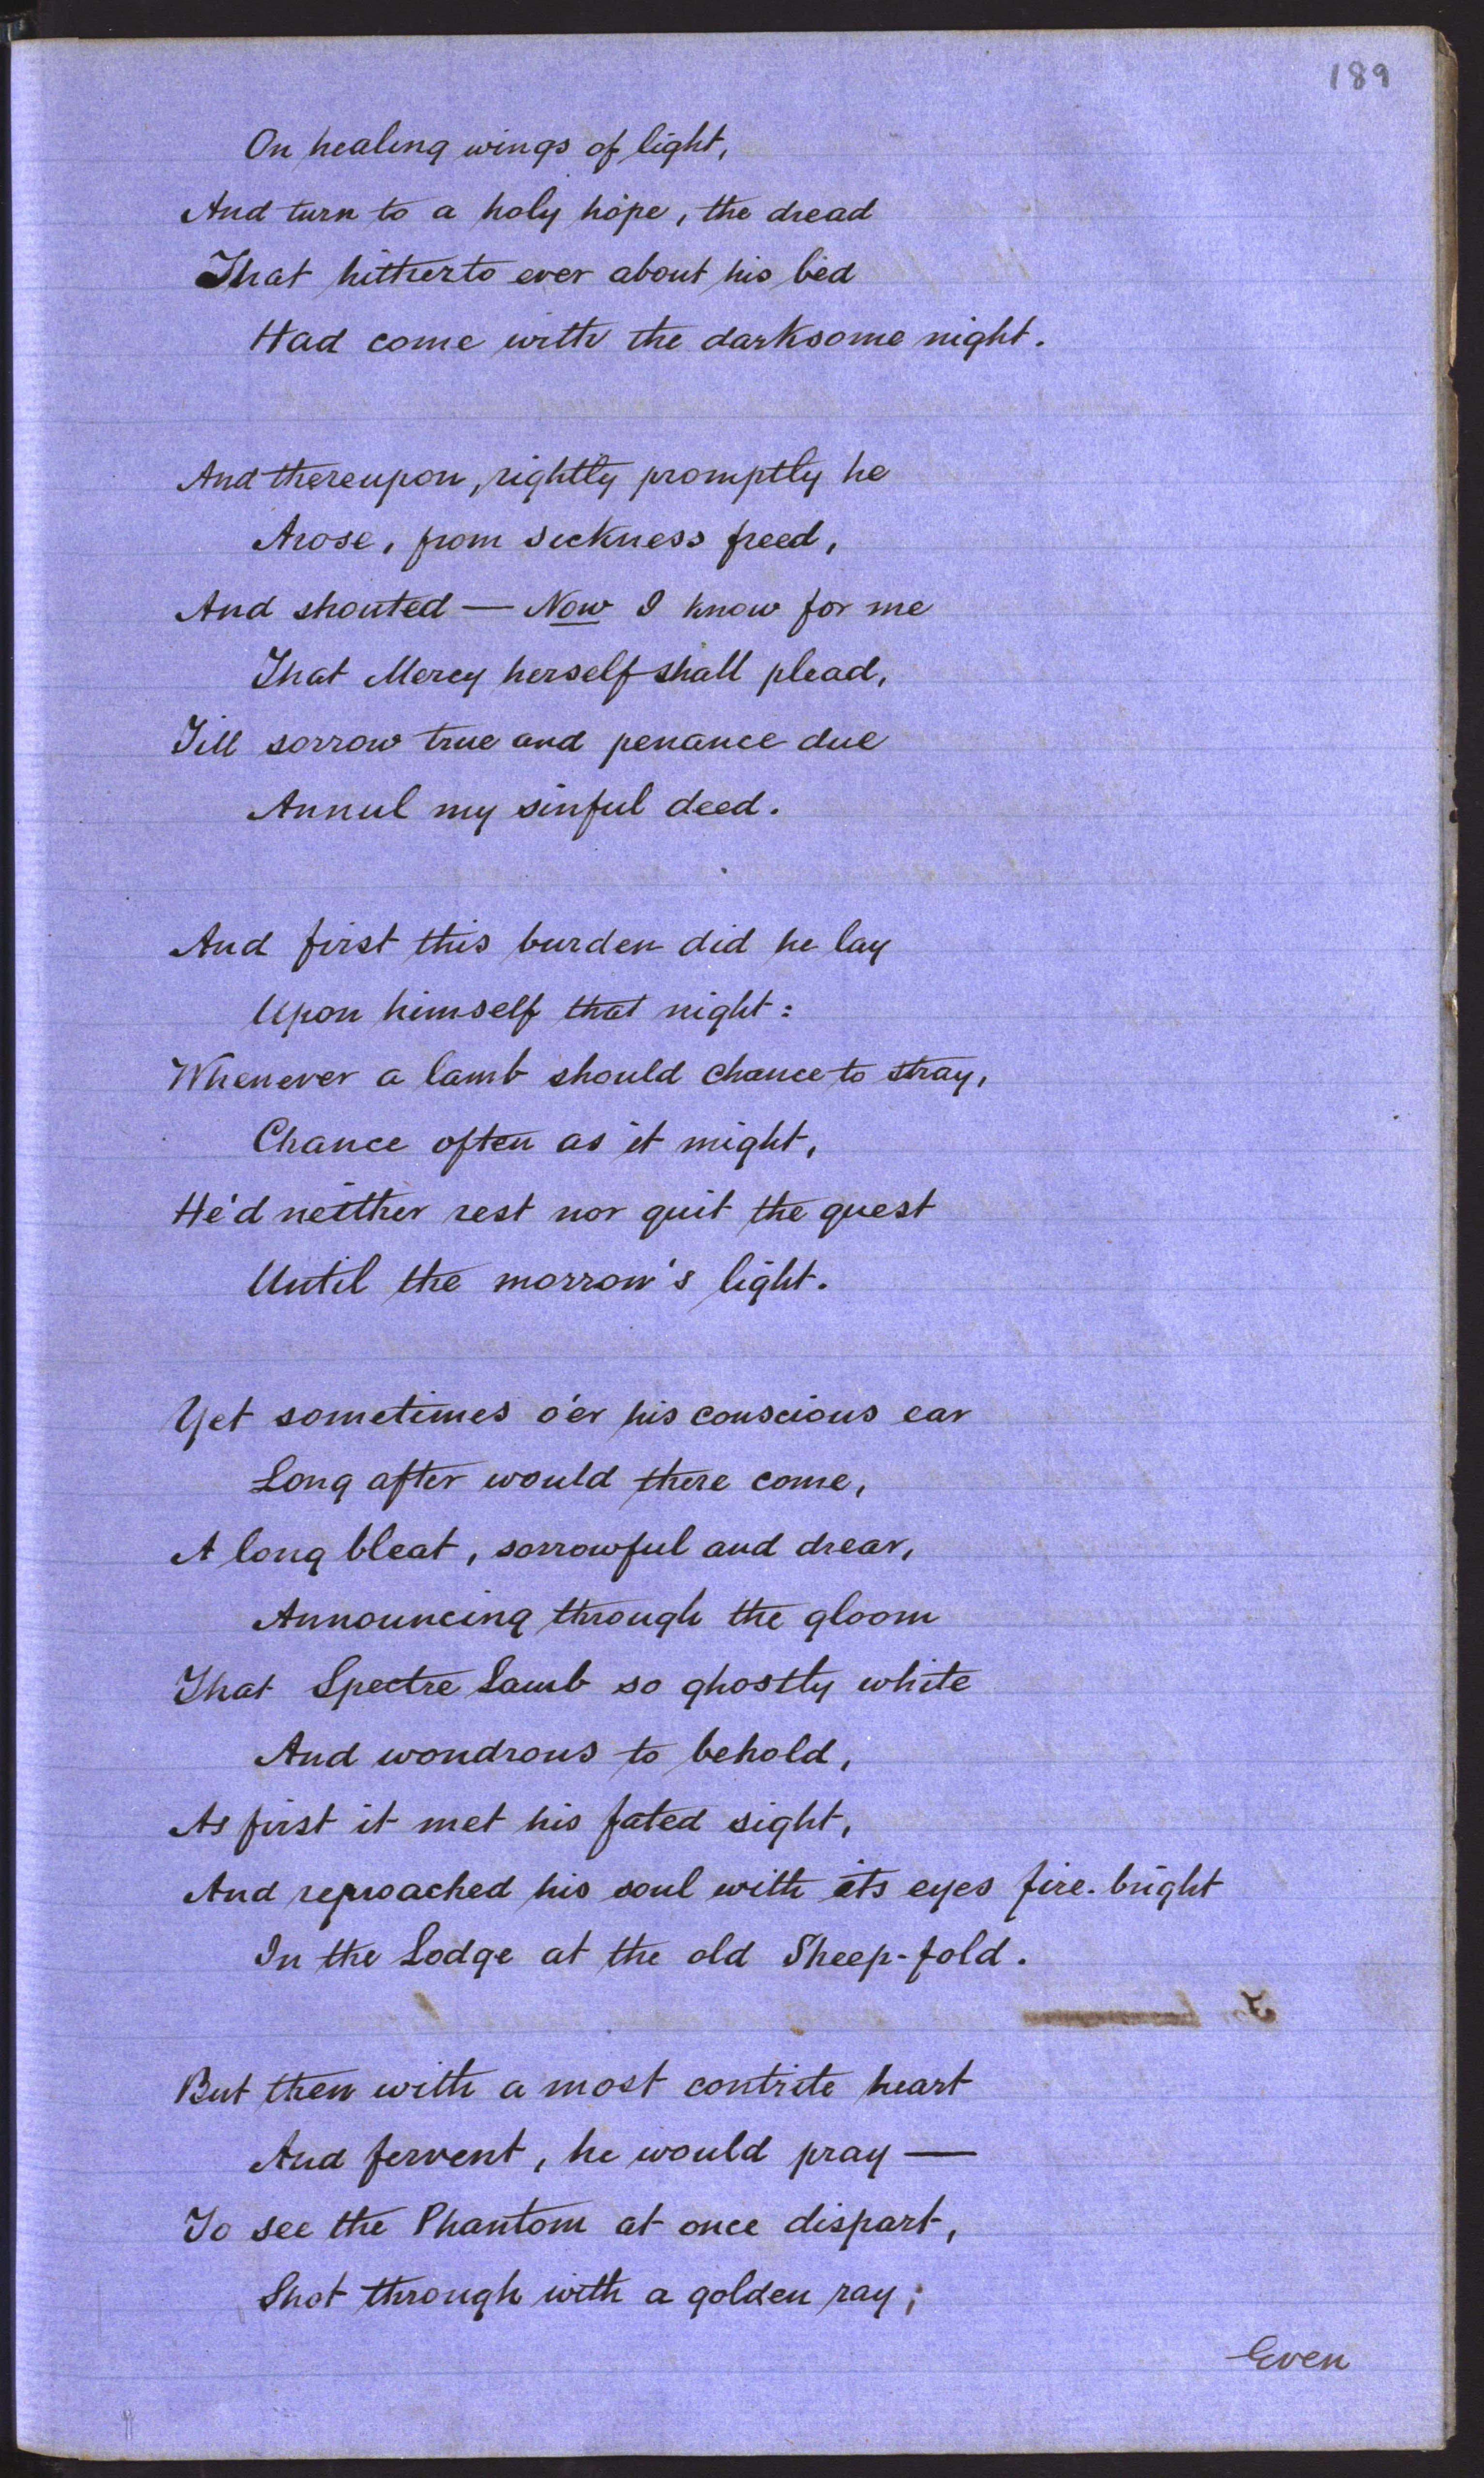 189
On healing wings of light,
And turn to a holy hope, the dread
That hitherto ever about his bed
Had come with the darksome night.
And thereupon, rightly promptly he
Arose, from sickness freed,
And shouted — Now I know for me
That Mercy herself shall plead,
Till sorrow true and penance due
Annul my sinful deed.
And first this burden did he lay
Upon himself that night:
Whenever a lamb should chance to stray,
Chance often as it might,
He'd neither rest nor quit the quest
Until the morrow's light.
Yet sometimes o'er his conscious ear
Long after would there come,
A long bleat, sorrowful and drear,
Announcing through the gloom
That Spectre Lamb so ghostly white
And wondrous to behold,
As first it met his fated sight,
And reproached his soul with its eyes fire-bright
In the Lodge at the old Sheep-fold.
But then with a most contrite heart
And fervent, he would pray —
To see the Phantom at once dispart,
Shot through with a golden ray;
Even